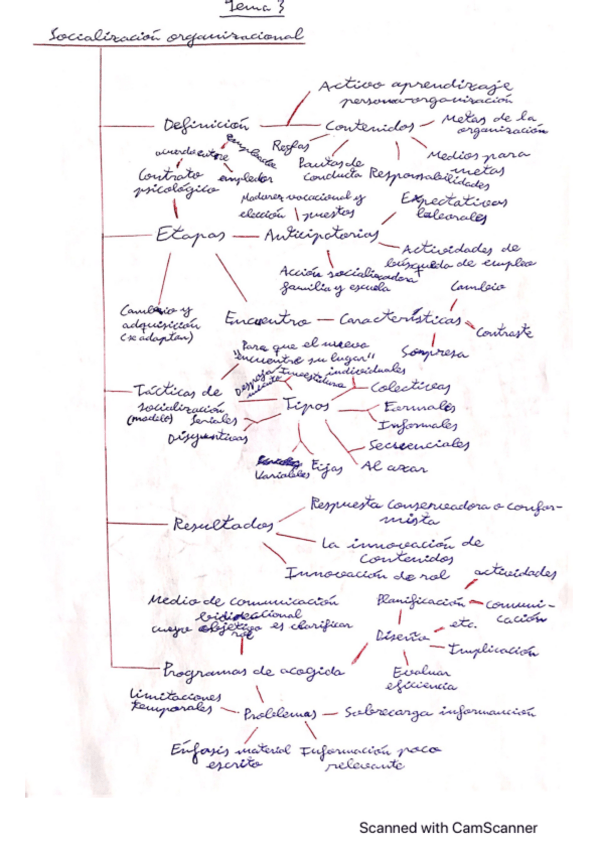 Tema 3
Socialización organizacional
Activo aprendizaje
persona-organización
Definición
Contenidos
Metas de la
organización
Reglas
Pautas de
conducta
Responsabilidades
Medios para
metas
acuerdo entre
empleador
empleador
Contrato
psicológico
Madurez vocacional y
elección puestos
Expectativas
laborales
Etapas
Anticipatorias
Actividades de
búsqueda de empleo
Acción socializadora
familia y escuela
Cambio y
adquisición
(se adaptan)
Encuentro
Características
Cambio
Contraste
Sorpresa
"Para que el nuevo
encuentre su lugar"
Tácticas de
socialización
(modelo)
Tipos
Investidura
individuales
Colectivas
Formales
Informales
Secuenciales
Al azar
Fijas
Variables
Seriales
Disyuntivas
Resultados
Respuesta conservadora o confor-
mista
La innovación de
contenidos
Innovación de rol
Medio de comunicación
bidireccional
cuyo objetivo es clarificar
rol
Programas de acogida
Diseño
Planificación
actividades
comuni-
cación
etc.
Implicación
Evaluar
eficiencia
Limitaciones
temporales
Problemas
Sobrecarga información
Énfasis material
escrito
Información poco
relevante
Scanned with CamScanner